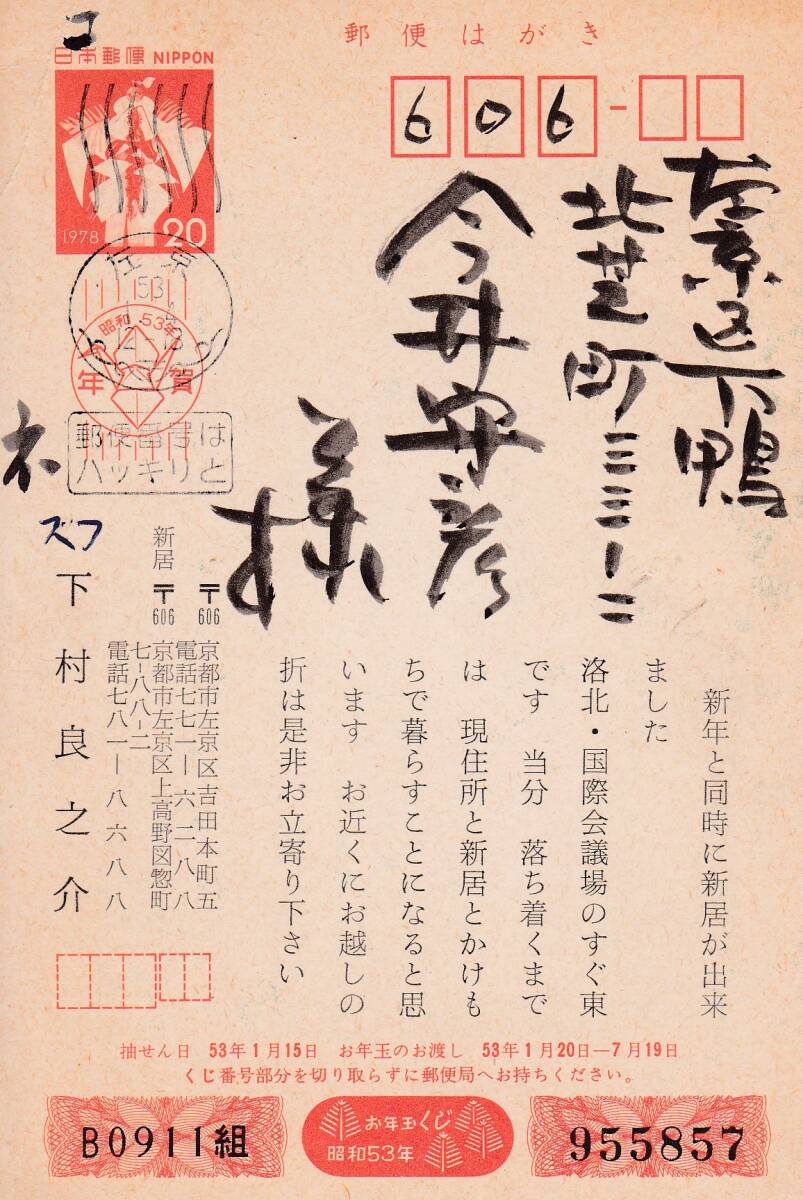 郵便はがき
コ
日本郵便 NIPPON
1978
20
606
左京区下鴨
北芝町三三ー二
今井安彦
様
左京
53
昭和53年
年賀
郵便番号は
ハッキリと
ネ
スフ
新年と同時に新居が出来
ました
洛北・国際会議場のすぐ東
です 当分 落ち着くまで
は 現住所と新居とかけも
ちで暮らすことになると思
います お近くにお越しの
折は是非お立寄り下さい
〒606 京都市左京区吉田本町五
電話七七一ー六二八八
新居 〒606 京都市左京区上高野図惣町
七ー八八ー二
電話七八一ー八六八八
下村良之介
抽せん日 53年1月15日 お年玉のお渡し 53年1月20日―7月19日
くじ番号部分を切り取らずに郵便局へお持ちください。
B0911組
お年玉くじ
昭和53年
955857